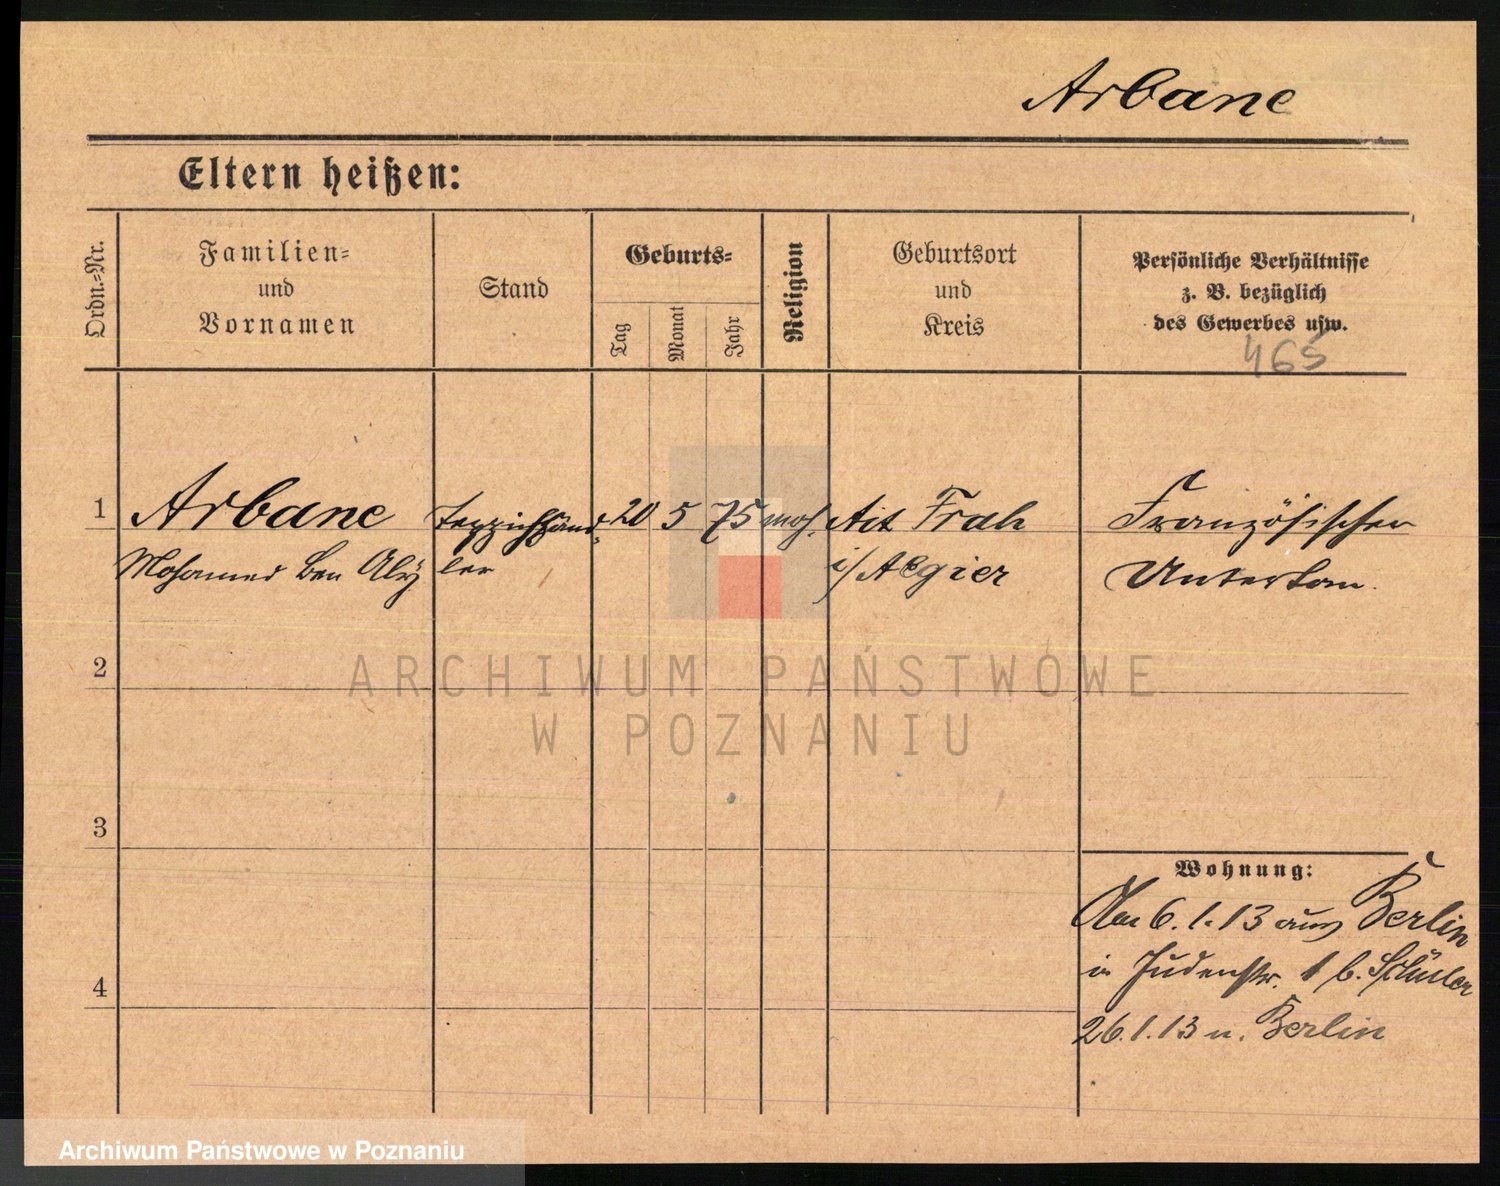 Arbane
Eltern heißen:
Ordn.-Nr.
Familien-
und
Vornamen
Stand
Geburts-
Tag
Monat
Jahr
Religion
Geburtsort
und
Kreis
Persönliche Verhältnisse
z. B. bezüglich
des Gewerbes usw.
465
1 Arbane Teppichhänd- 20 5 75 moh. Ait Frah Französischer
Mohamed Ben Aly ler i/Algier Untertan.
2
3
Wohnung:
Am 6.1.13 aus Berlin
in Judenstr. 1 b. Schüler
4
26.1.13 n. Berlin
ARCHIWUM PAŃSTWOWE
W POZNANIU
Archiwum Państwowe w Poznaniu